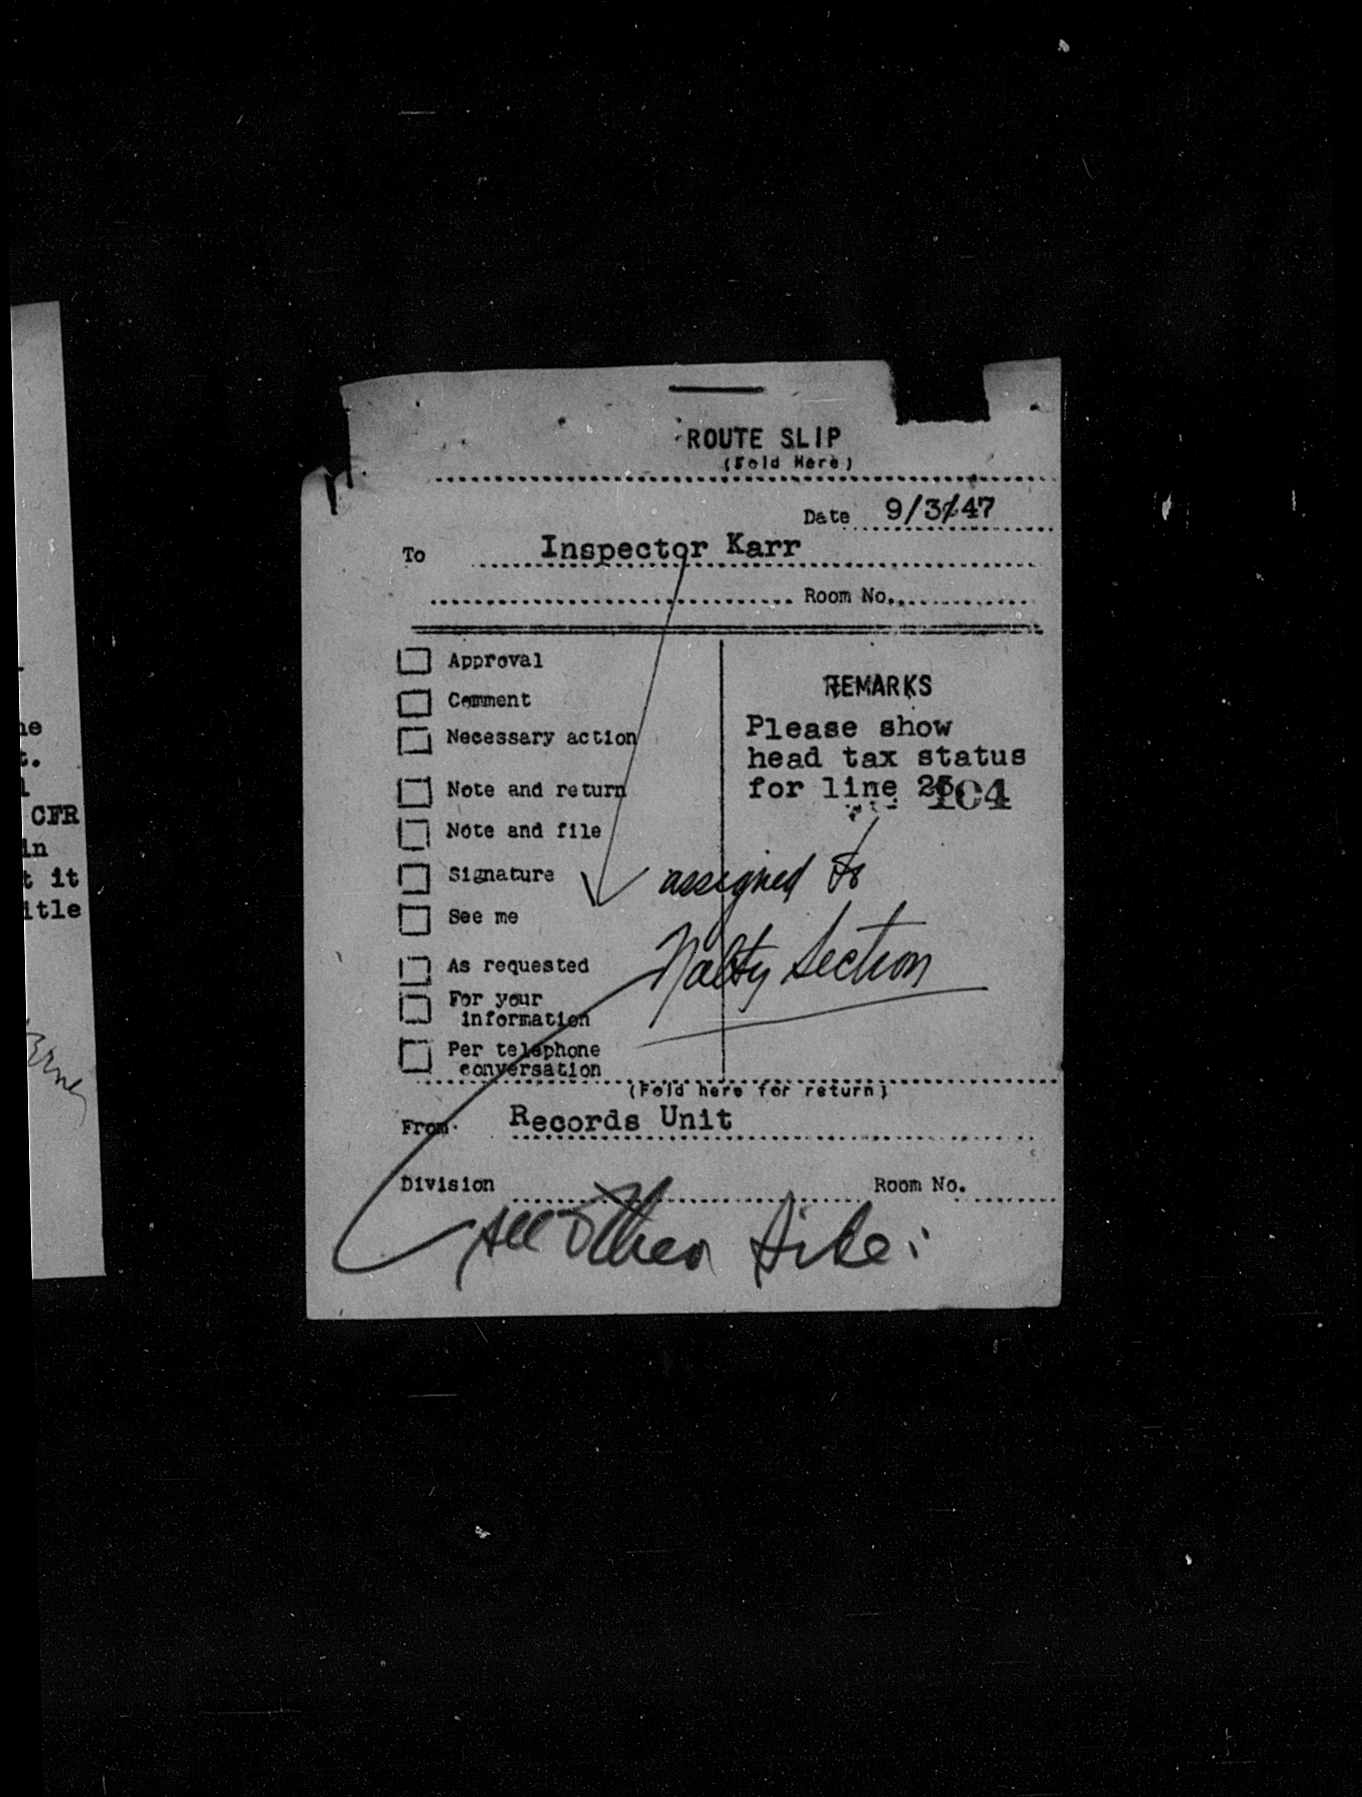 ROUTE SLIP
(Fold Here)
Date 9/3/47
To Inspector Karr
Room No.
Approval
Comment
Necessary action
Note and return
Note and file
Signature
See me
As requested
For your
information
Per telephone
conversation
REMARKS
Please show
head tax status
for line 25
104
assigned to
Nalty Section
(Fold here for return)
From Records Unit
Division Room No.
see other side:
CFR
in
it